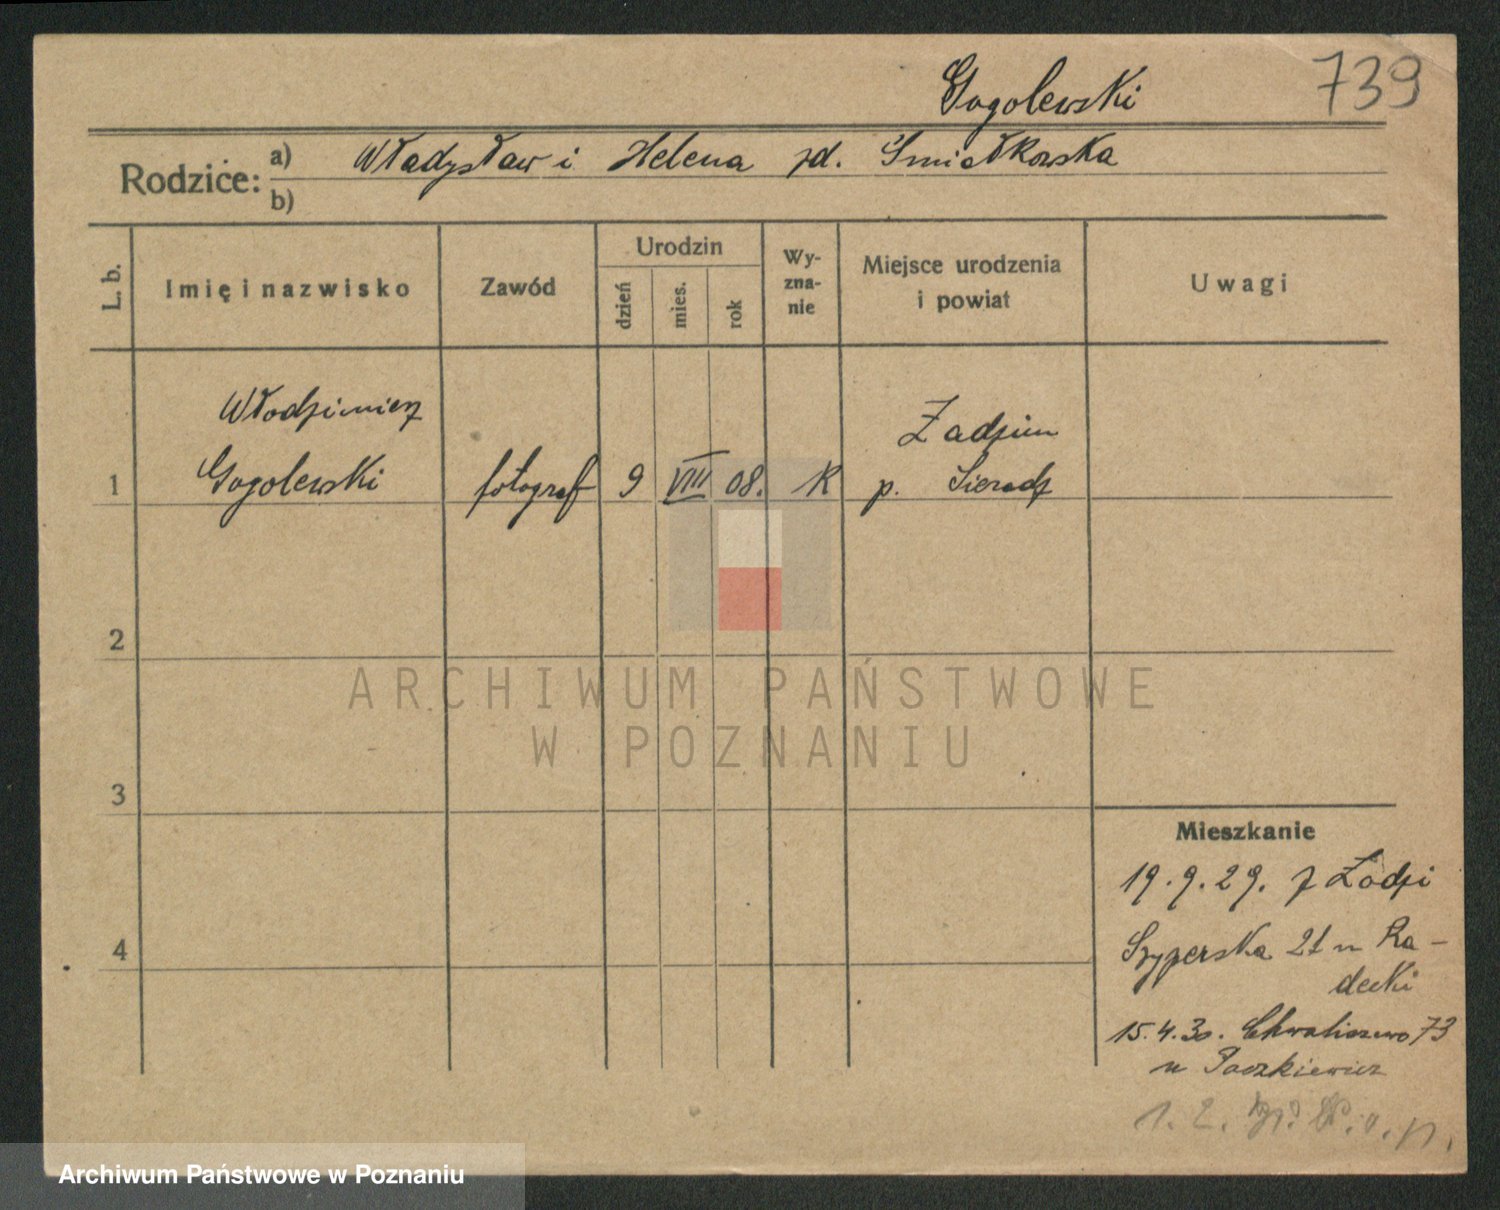 Gogolewski 739
Rodzice: a) Władysław i Helena zd. Śmiałkowska
b)
L. b. Imię i nazwisko Zawód Urodzin dzień mies. rok Wy-zna-nie Miejsce urodzenia i powiat Uwagi
Włodzimierz Zadzim
1 Gogolewski fotograf 9 VIII 08. K p. Sieradz
2
ARCHIWUM PAŃSTWOWE
W POZNANIU
3
Mieszkanie
19.9.29. z Łodzi
4 Szyperska 21 u Ra-
decki
15.4.30. Chwaliszewo 73
u Paczkiewicz
1. 2.
Archiwum Państwowe w Poznaniu